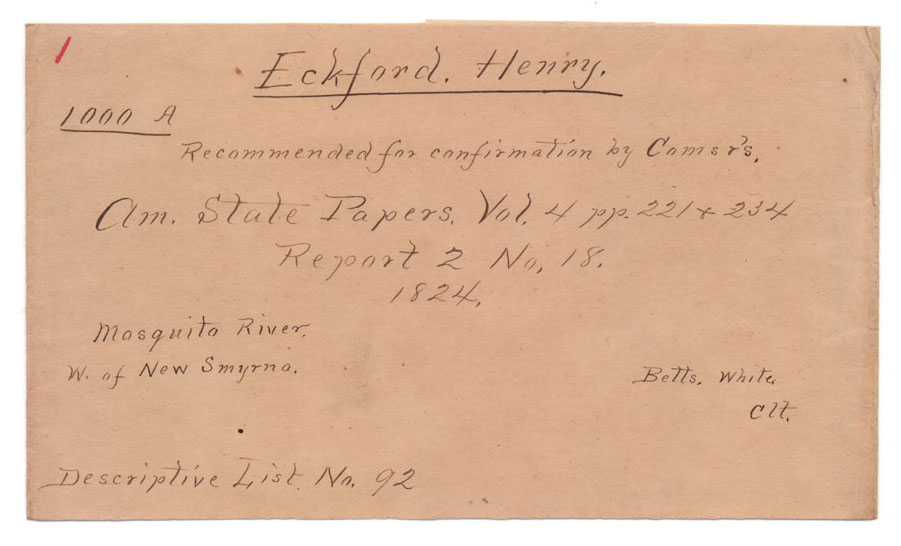 1
Eckford. Henry.
1000 A
Recommended for confirmation by Comsr's.
Am. State Papers. Vol. 4 pp. 221 + 234
Report 2 No. 18.
1824.
Mosquito River.
W. of New Smyrna.
Betts. White
Clt.
Descriptive List. No. 92